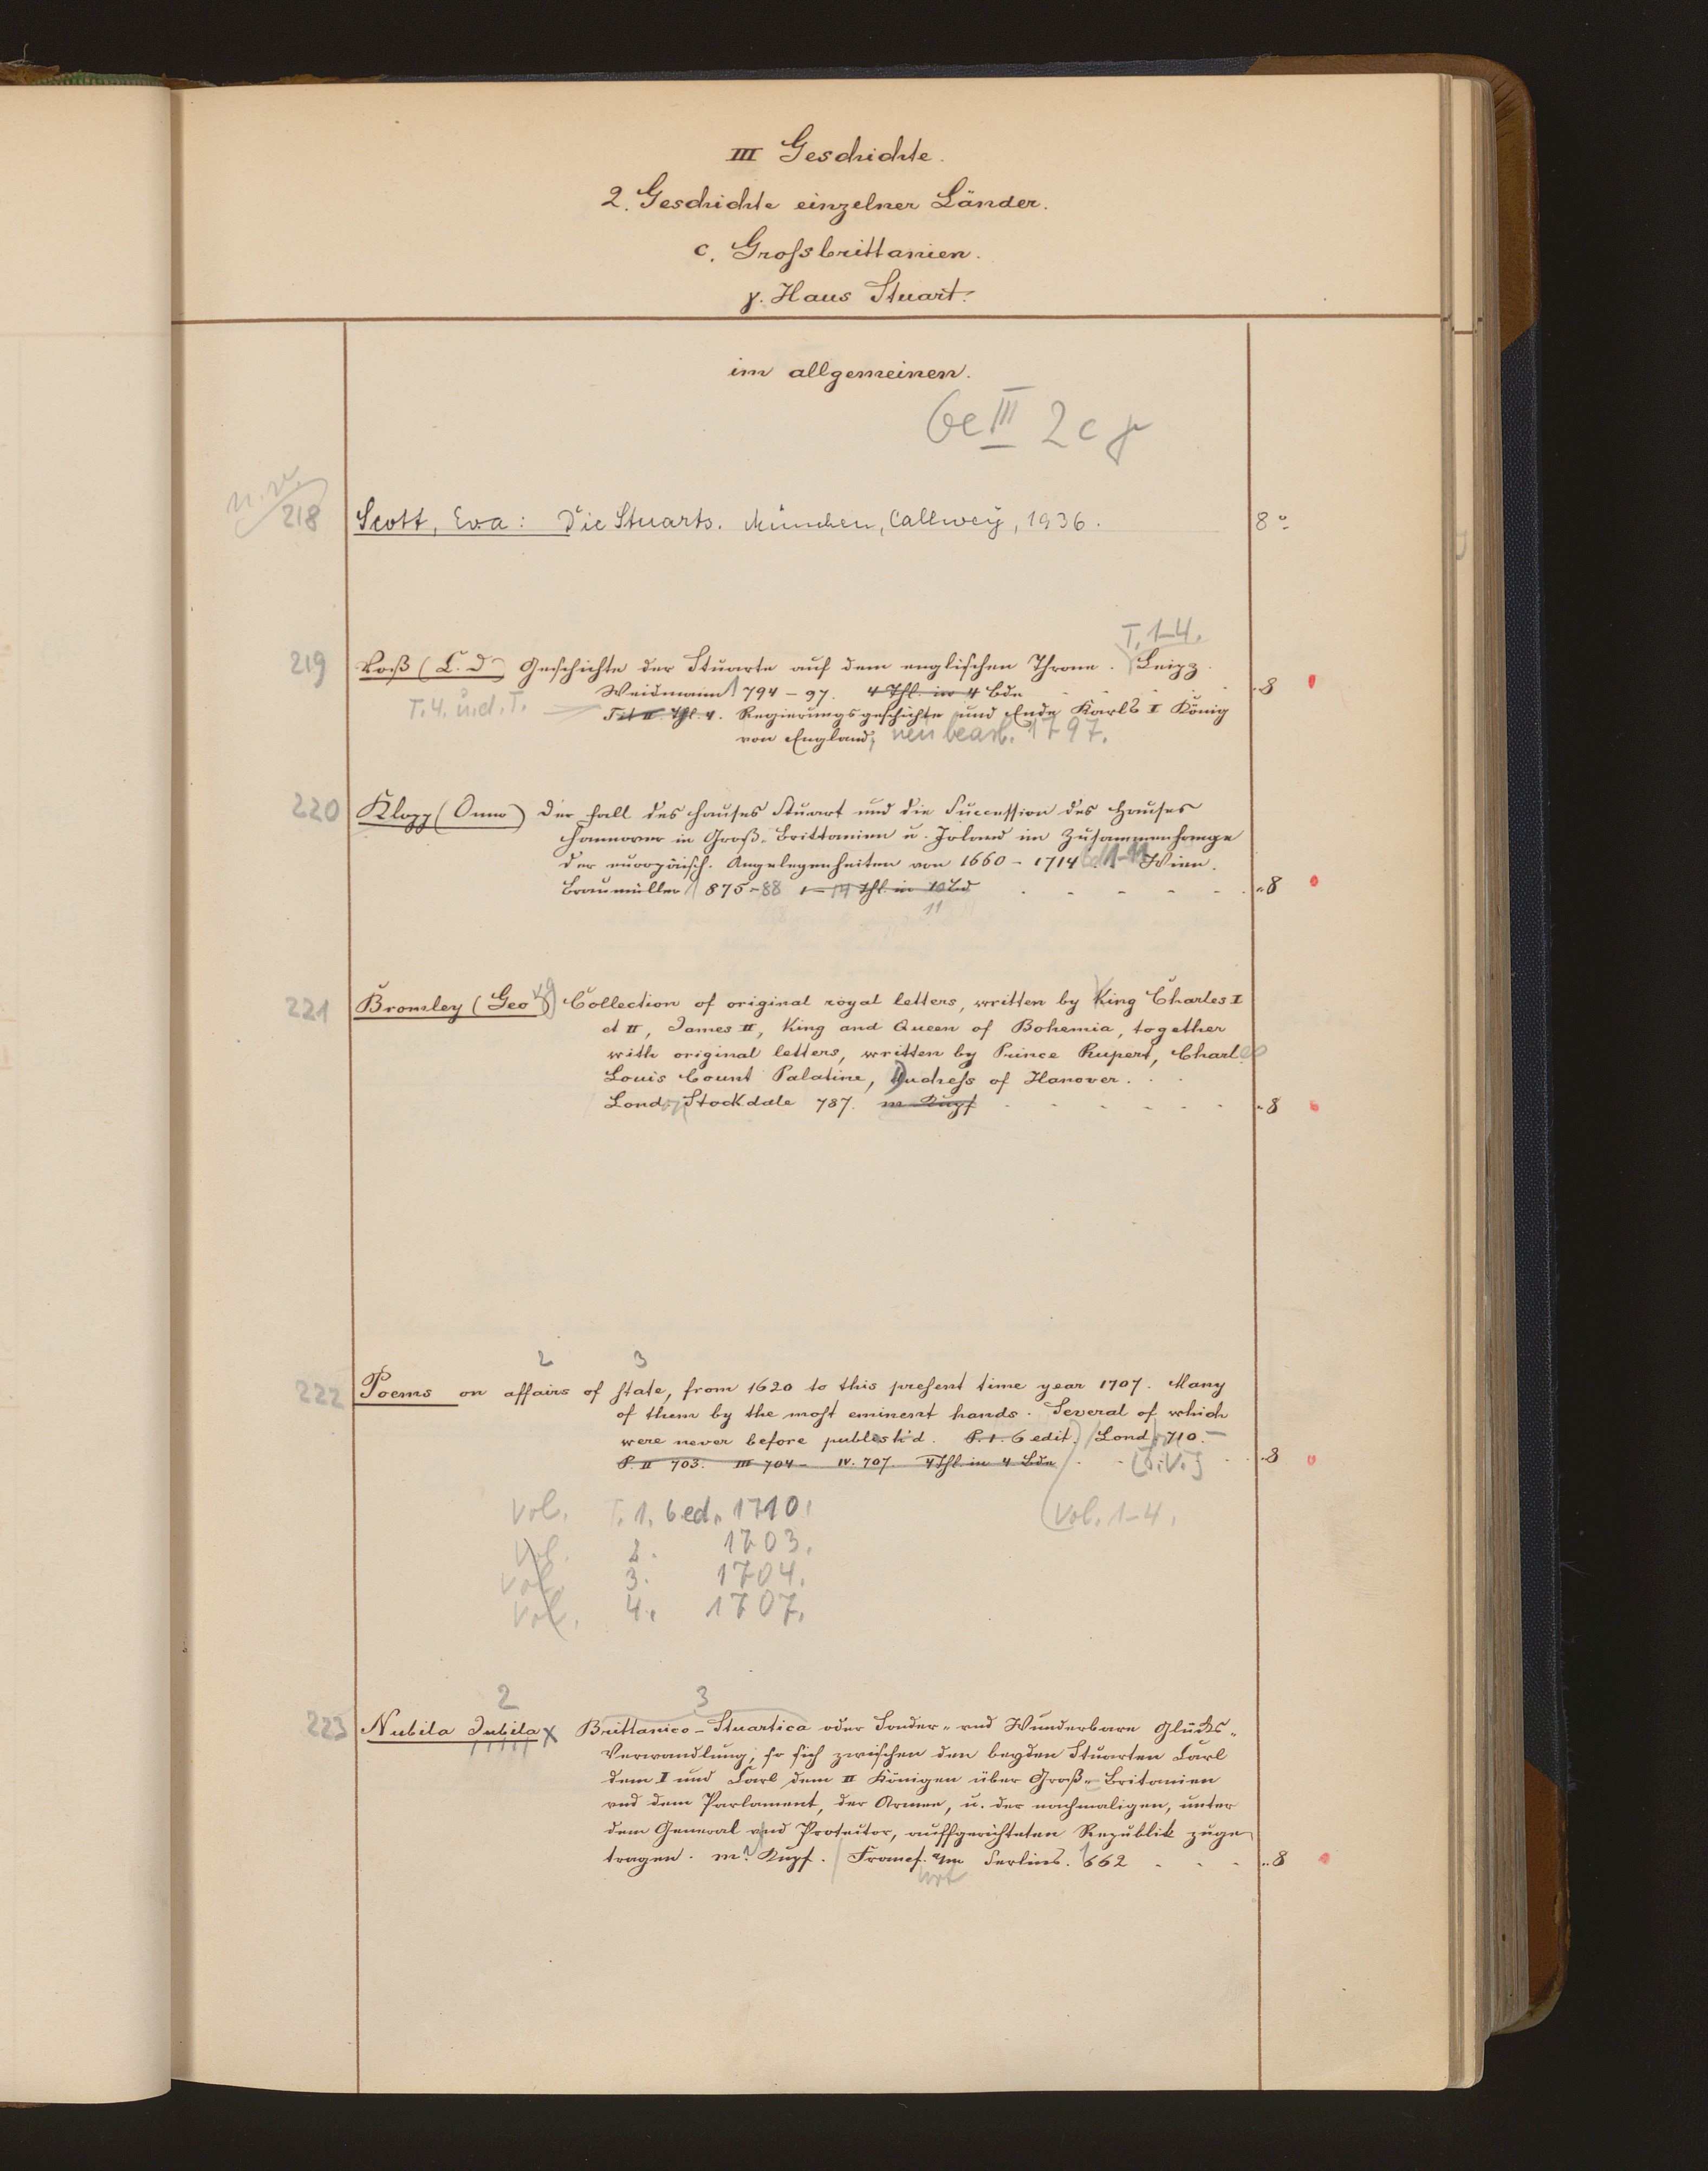 III Geschichte.
2. Geschichte einzelner Länder.
c. Grossbrittanien.
γ. Haus Stuart.
im allgemeinen.
Ge III 2 c γ
218 Scott, Eva: Die Stuarts. München, Callwey, 1936. 8°
T. 1-4.
219 Voß (C. D.) Geschichte der Stuarte auf dem englischen Throne. Leipz.
Weidmann 1794-97. 4 Thl. in 4 Bde 8
T. 4. u. d. T. Tit II. Thl. 4. Regierungsgeschichte und Ende Karls I König
von England; neu bearb. 1797.
220 Klopp (Onno) Der Fall des Hauses Stuart und die Succession des Hauses
Hannover in Groß-Brittanien u. Irland im Zusammenhange
der europäisch. Angelegenheiten von 1660-1714. Bd 1-14 Wien.
Braumüller 1875-88 1-14 Thl. in 10 Bd 8
11
221 Bromley (Geo) Collection of original royal letters, written by King Charles I
et II, James II, King and Queen of Bohemia, together
with original letters, written by Prince Rupert, Charles
Louis Count Palatine, Duchess of Hanover.
Lond. Stockdale 787. m Kupf 8
2 3
222 Poems on affairs of state, from 1620 to this present time year 1707. Many
of them by the most eminent hands. Several of which
were never before publesh'd. P. 1. 6 edit. Lond. 1710.
P. II 703. III 704- IV. 707. 4 Thl. in 4 Bde 8
Vol. T. 1. 6 ed. 1710. Vol. 1-4.
Vol. 2. 1703.
Vol. 3. 1704.
Vol. 4. 1707.
2 3
223 Nubila Jubila x Brittanico-Stuartica oder Sonder- und Wunderbare Glücks-
Verwandlung; so sich zwischen den beyden Stuarten Carl
dem I und Carl dem II Königen über Groß-Britanien
und dem Parlament, der Armee, u. der nachmaligen, unter
dem General und Protector, auffgerichteten Republik zuge
tragen. m. Kupf. Francf. a/m Serlins. 1662 8